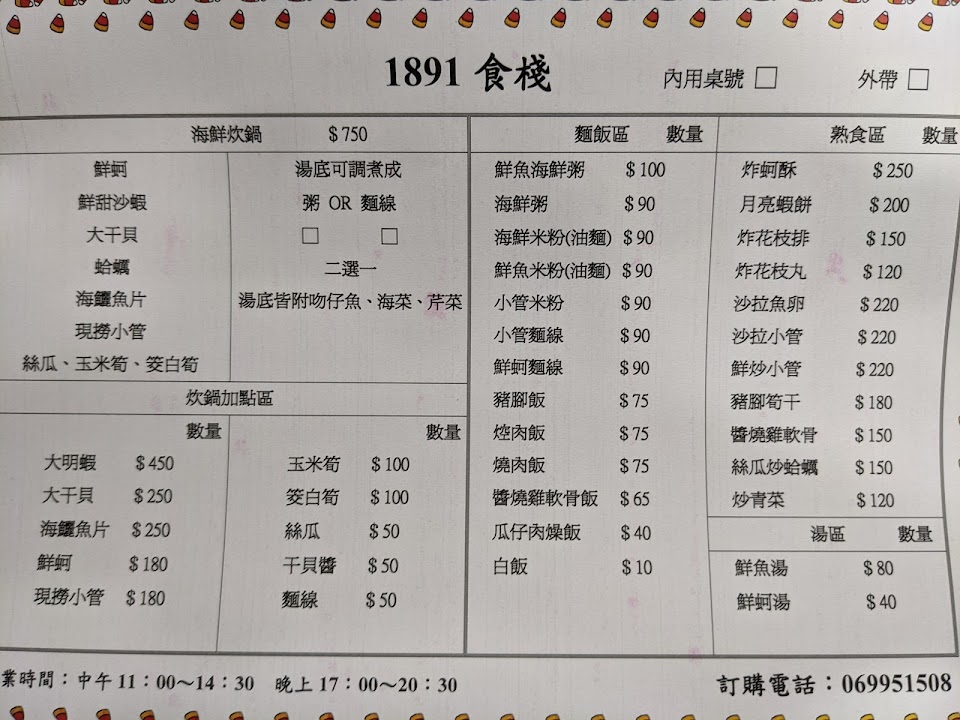 1891 食棧
內用桌號 □
外帶 □
海鮮炊鍋 $750
鮮蚵
鮮甜沙蝦
大干貝
蛤蠣
海鱺魚片
現撈小管
絲瓜、玉米筍、筊白筍
湯底可調煮成
粥 OR 麵線
□ □
二選一
湯底皆附吻仔魚、海菜、芹菜
炊鍋加點區
數量
大明蝦 $450
大干貝 $250
海鱺魚片 $250
鮮蚵 $180
現撈小管 $180
數量
玉米筍 $100
筊白筍 $100
絲瓜 $50
干貝醬 $50
麵線 $50
麵飯區 數量
鮮魚海鮮粥 $100
海鮮粥 $90
海鮮米粉(油麵) $90
鮮魚米粉(油麵) $90
小管米粉 $90
小管麵線 $90
鮮蚵麵線 $90
豬腳飯 $75
焢肉飯 $75
燒肉飯 $75
醬燒雞軟骨飯 $65
瓜仔肉燥飯 $40
白飯 $10
熟食區 數量
炸蚵酥 $250
月亮蝦餅 $200
炸花枝排 $150
炸花枝丸 $120
沙拉魚卵 $220
沙拉小管 $220
鮮炒小管 $220
豬腳筍干 $180
醬燒雞軟骨 $150
絲瓜炒蛤蠣 $150
炒青菜 $120
湯區 數量
鮮魚湯 $80
鮮蚵湯 $40
業時間：中午 11：00～14：30 晚上 17：00～20：30
訂購電話：069951508